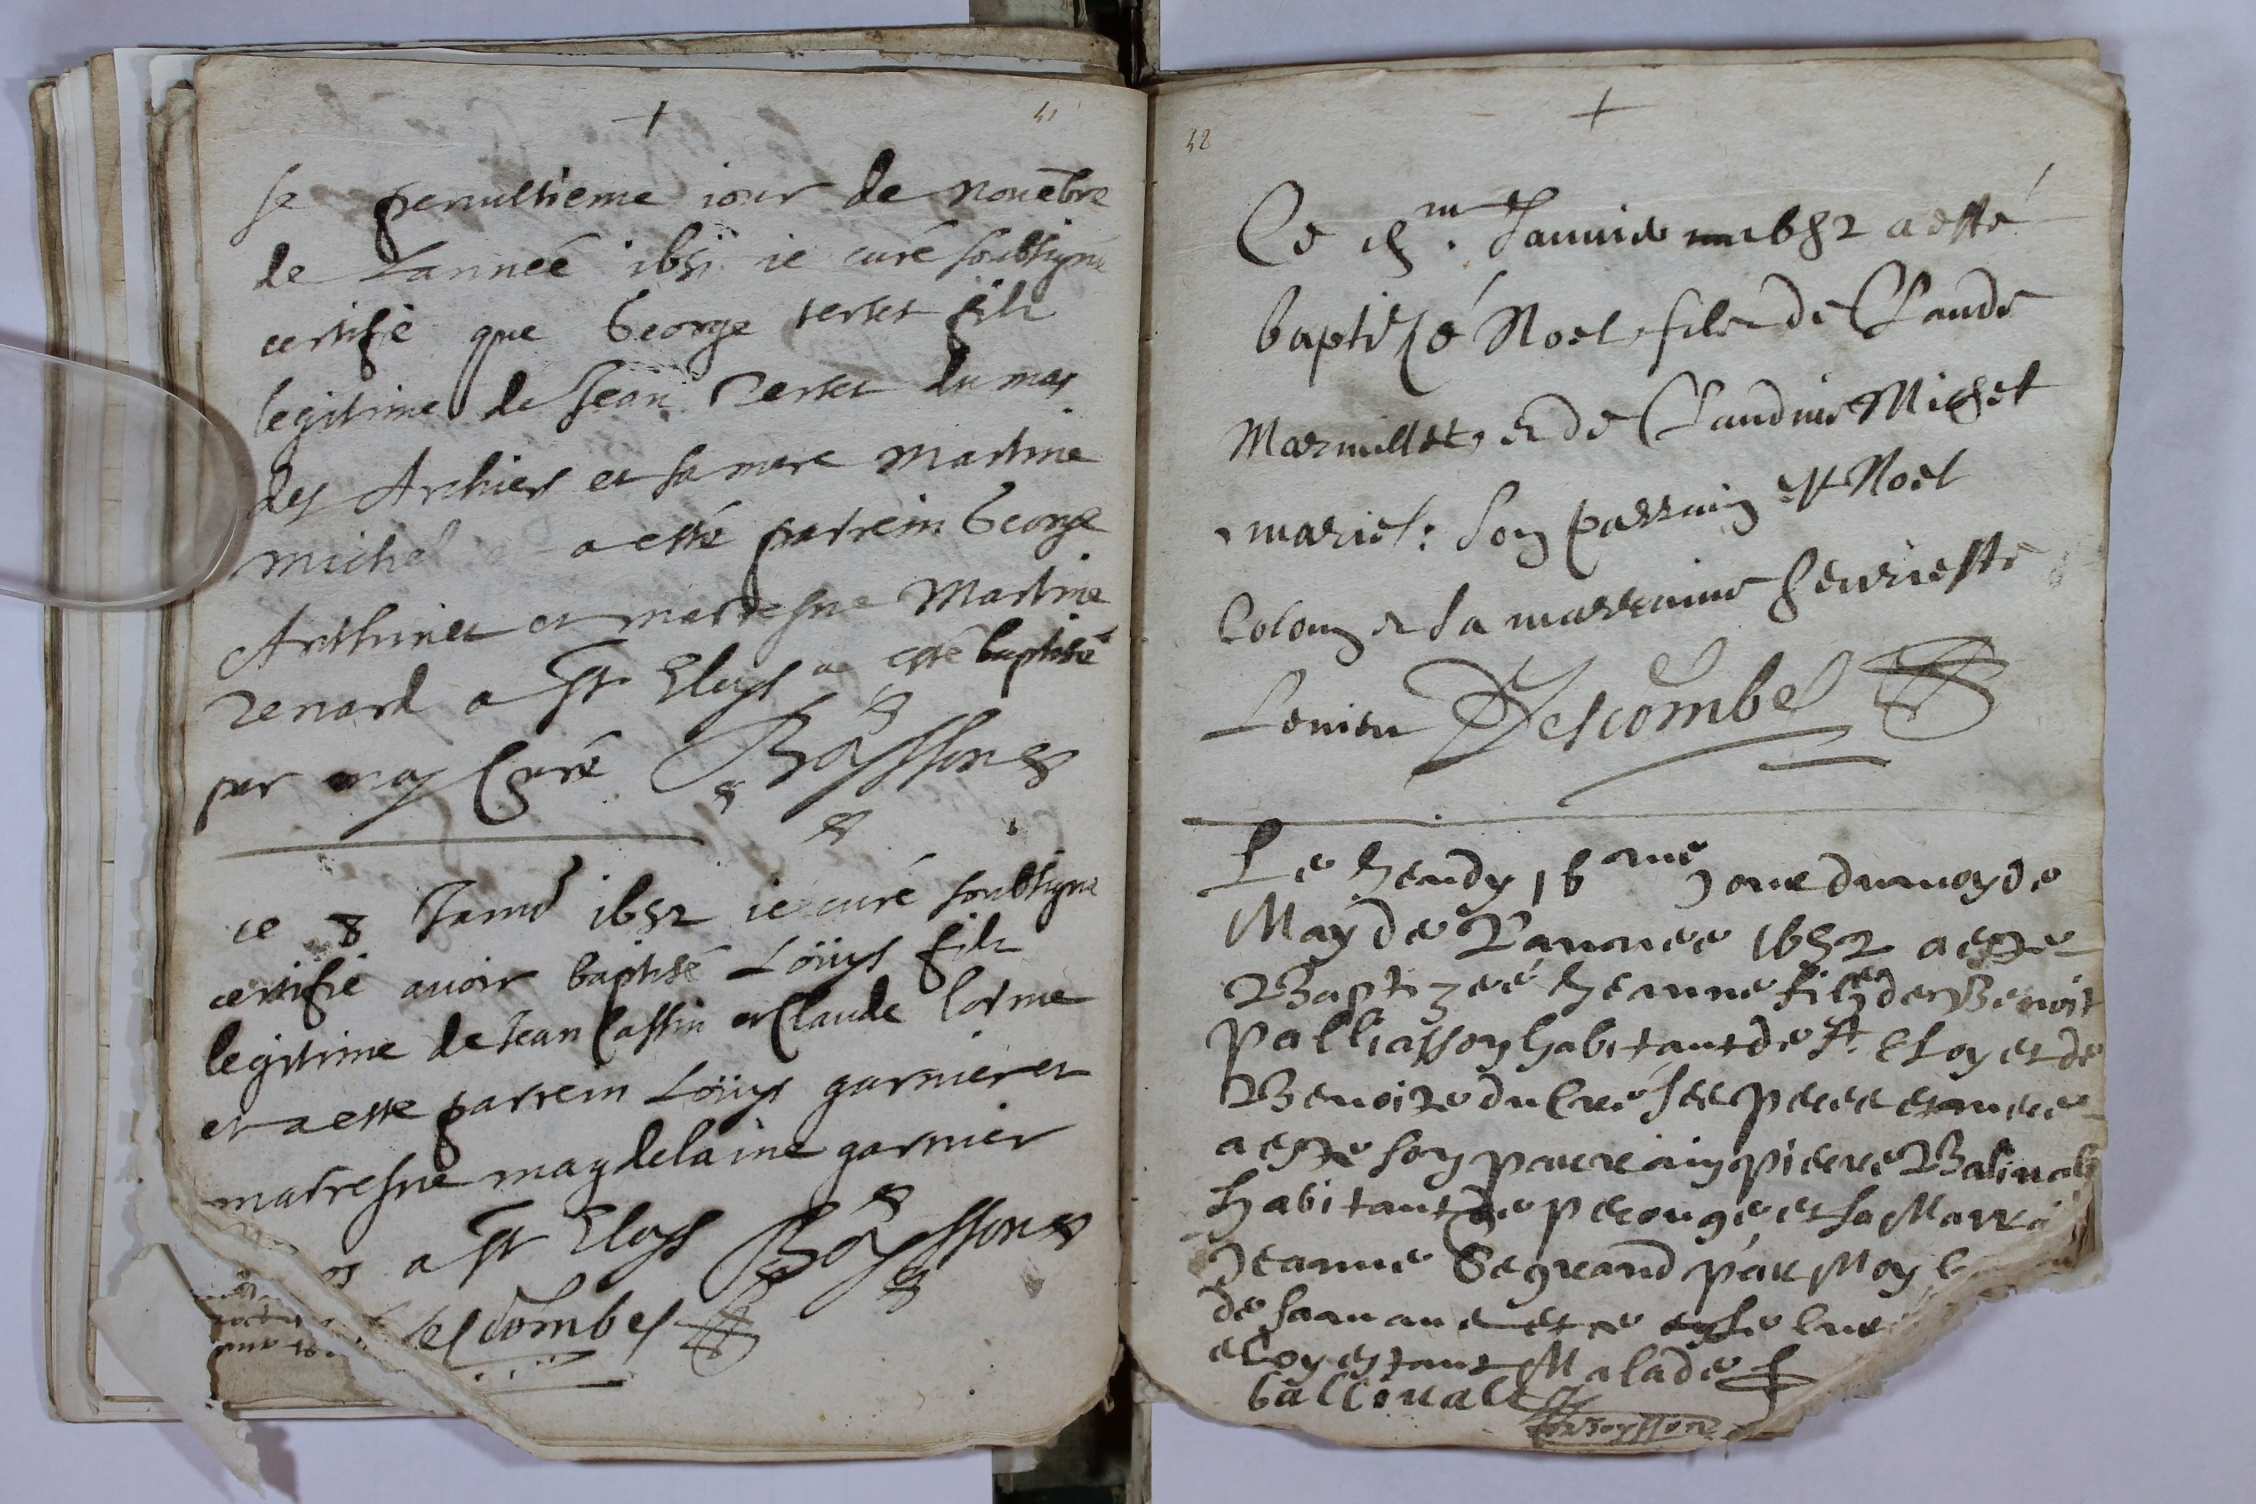 51
se penultieme iour de nouēbre
de Lanneé 1651 ie curé soubsigné
certifie que George terlet filz
legitime de Jean Terlet du mas
des Archiers et sa mere Martine
Michel a esté parrein George
Arthinet et marresne Martine
Renard a St Eloys a esté baptisé
par moy Curé Boyssson
ce 8 Janvr 1652 ie curé soubsigné
certifie avoir baptisé Loüys filz
legitime de Jean Cassin et Claude Lorme
et a este parrein Loüys garnier et
marresne magdelaine garnier
a St Eloys Boyssson
Descombes
52
Ce Janvie 1652 a esté
baptisé Noel filz de Claude
Marmillet, et de Claudine Michel
mariés: son parrain est Noel
Colomb et sa marraine henrieste
Descombes
Le Jeudy 16 me Jour du moys de
May de L'annee 1652 a este
Baptizeé Jeanne fille de Benoit
palliasson habitant de st. Eloy et de
Benoite du Cré ses pere et mere
a este son parrain pierre Balival
habitant de perouge et sa Marra
Jeanne Segrand par Moy
de saman le Cure
eloy estant Malade
ballival
Boysson